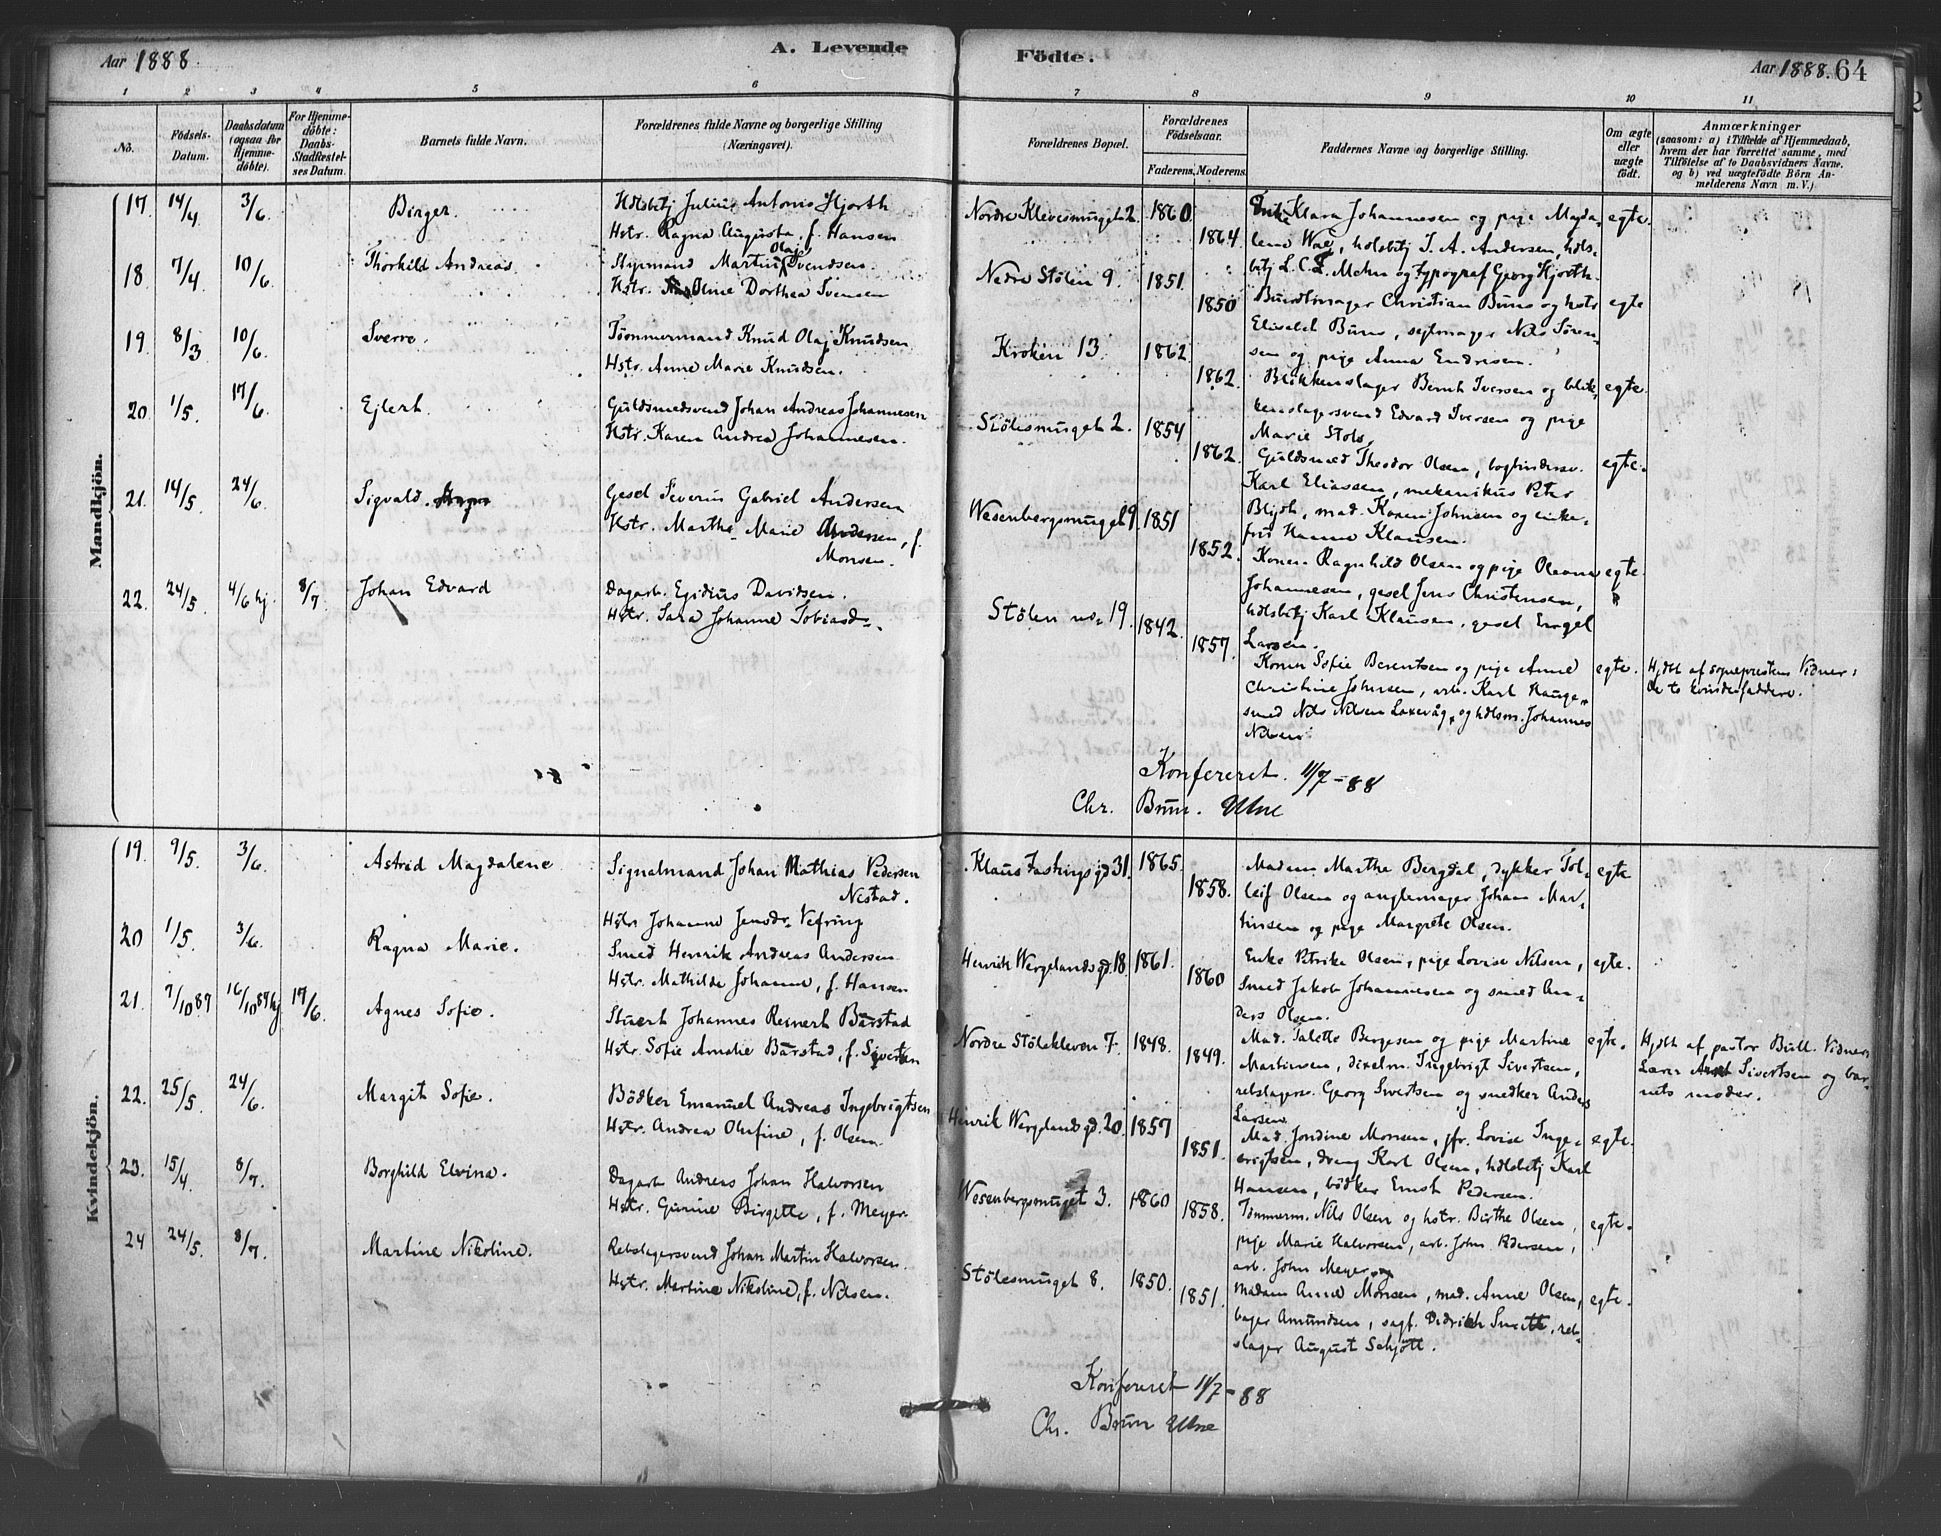 Aar 1888. A. Levende Födte. Aar 1888. 64
1 2 3 4 5 6 7 8 9 10 11
No.
Födsels-Datum.
Daabsdatum (ogsaa for Hjemme-döbte).
For Hjemme-döbte: Daabs-Stadfæstel-ses Datum.
Barnets fulde Navn.
Forældrenes fulde Navne og borgerlige Stilling (Næringsvei).
Forældrenes Bopæl.
Forældrenes Födselsaar.
Faderens. Moderens.
Faddernes Navne og borgerlige Stilling.
Om ægte eller uægte födt.
Anmærkninger
(saasom: a) i Tilfælde af Hjemmedaab, hvem der har forrettet samme, med Tilföielse af to Daabsvidners Navne. og b) ved uægtefödte Börn An-melderens Navn m. V.).
Mandkjön.
17. 14/4 3/6. Birger. Hdlsbtj Julius Antonis Hjorth
Hstr. Ragna Augusta, f. Hansen
Nordre Klevesmuget 2. 1860 1864
Enke Klara Johannesen og pige Magda-
lene Wæ, hdlsbtj J. A. Andersen, hdls-
btj L. C. Z. Mehn og typograf Georg Hjorth.
egte.
18 7/4 10/6. Thorkild Andreas. Styrmand Martin Olaj Svendsen.
Hstr. Oline Dorthea Svensen
Nedre Stølen 9. 1851. 1850
Buntmager Christian Buns og hstr
Elisabeth Buns, sejlmager Nils Søren-
sen og pige Anna Endresen.
egte
19. 8/3 10/6. Sverre. Tømmermand Knud Olaj Knudsen
Hstr. Anne Marie Knudsen.
Kroken 13. 1862. 1862.
Blikkenslager Bernh Iversen og blik-
kenslagersvend Edvard Iversen og pige
Marie Stols.
egte.
20. 1/5. 17/6 Ejlert. Guldsmedsvend Johan Andreas Johannesen
Hstr. Karen Andrea Johannesen.
Stølesmuget 2. 1854 1862.
Guldsmed Theodor Olsen, bogbindersv.
Karl Eliassen, mekanikus Peter
Blijdh, mad. Karen Johnsen og enke-
fru Hanna Klausen.
egte.
21. 14/5 24/6. Sigvald. Gesel Severin Gabriel Andersen
Hstr. Marthe Marie Andersen, f.
Monsen.
Wesenbergsmuget 9. 1851 1852.
Konen Ragnhild Olsen og pige Oleana
Johannesen, gesel Jens Christensen,
hdlsbtj Karl Klausen, gesel Engel
Larsen.
egte.
22. 24/5. 4/6 hj. 8/7. Johan Edvard Dagarb. Egidius Davidsen.
Hstr. Sara Johanne Tobiasd.
Stølen no. 19. 1842. 1857.
Konen Sofie Berentsen og pige Anne
Christine Johnsen, arb. Karl Hauge,
smed Nils Nilsen Laxevåg, og hdlsm. Johannes
Nilsen
egte.
Hjdbt af sognepresten Vidner:
de to kvindefaddere.
Konfereret. 11/7-88
Chr. Brun. Ulne
Kvindekjön.
19. 9/5. 3/6. Astrid Magdalene Signalmand Johan Mathias Pedersen
Nestad.
Hstr Johanne Jensdr. Vefring
Klaus Fastings gd 31. 1865. 1858.
Madam Marthe Bergdal, dykker Tol-
leif Olsen og anglemager Johan Mar-
tinsen og pige Margrete Olsen.
egte
20 1/5. 3/6. Ragna Marie. Smed Henrik Andreas Andersen
Hstr. Mathilde Johanne, f. Hansen
Henrik Wergelands gd. 18. 1861. 1860
Enke Petrike Olsen, pige Lovise Nilsen,
Smed Jakob Johannesen og smed An-
ders Olsen.
egte.
21. 7/10 87 16/10 87 hj 17/6. Agnes Sofie. Stuert Johannes Reinert Bårstad
Hstr. Sofie Amalie Bårstad, f. Sivertsen
Nordre Stølekleven 7. 1848. 1849.
Mad. Talette Bergesen og pige Martine
Martinsen, dixelm. Ingebrigt Sivertsen,
rebslagersv. Georg Sivertsen og snedker Anders
Larsen.
egte.
Hjdbt af pastor Bull. Vidner:
Lærer Sivertsen og bar-
nets moder.
22. 25/5 24/6. Margit Sofie. Bödker Emanuel Andreas Ingebrigtsen
Hstr. Andrea Olufine, f. Olsen.
Henrik Wergelands gd. 20. 1857 1851.
Mad. Jondine Monsen, jfr. Lovise Inge-
brigtsen, dreng Karl Olsen, hdlsbtj Karl
Hansen, bödker Ernst Pedersen.
egte.
23. 15/4. 8/7. Borghild Elvina. Dagarb Andreas Johan Halvorsen
Hstr. Gurine Birgitte, f. Meyer.
Wesenbergsmuget 3. 1860 1858.
Tömmerm. Nils Olsen og hstr. Birthe Olsen,
pige Marie Halvorsen, arb. John Pedersen,
arb. John Meyer.
egte.
24 24/5. 8/7. Martine Nikoline. Rebslagersvend Johan Martin Halvorsen.
Hstr. Martine Nikoline, f. Nilsen.
Stølesmuget 8. 1850. 1851.
Madam Anna Monsen, mad. Anne Olsen,
bager Amundsen, sagf. Didrikh Smitt, reb-
slager August Schjött.
egte.
Konfereret 11/7-88
Chr. Brun Ulne